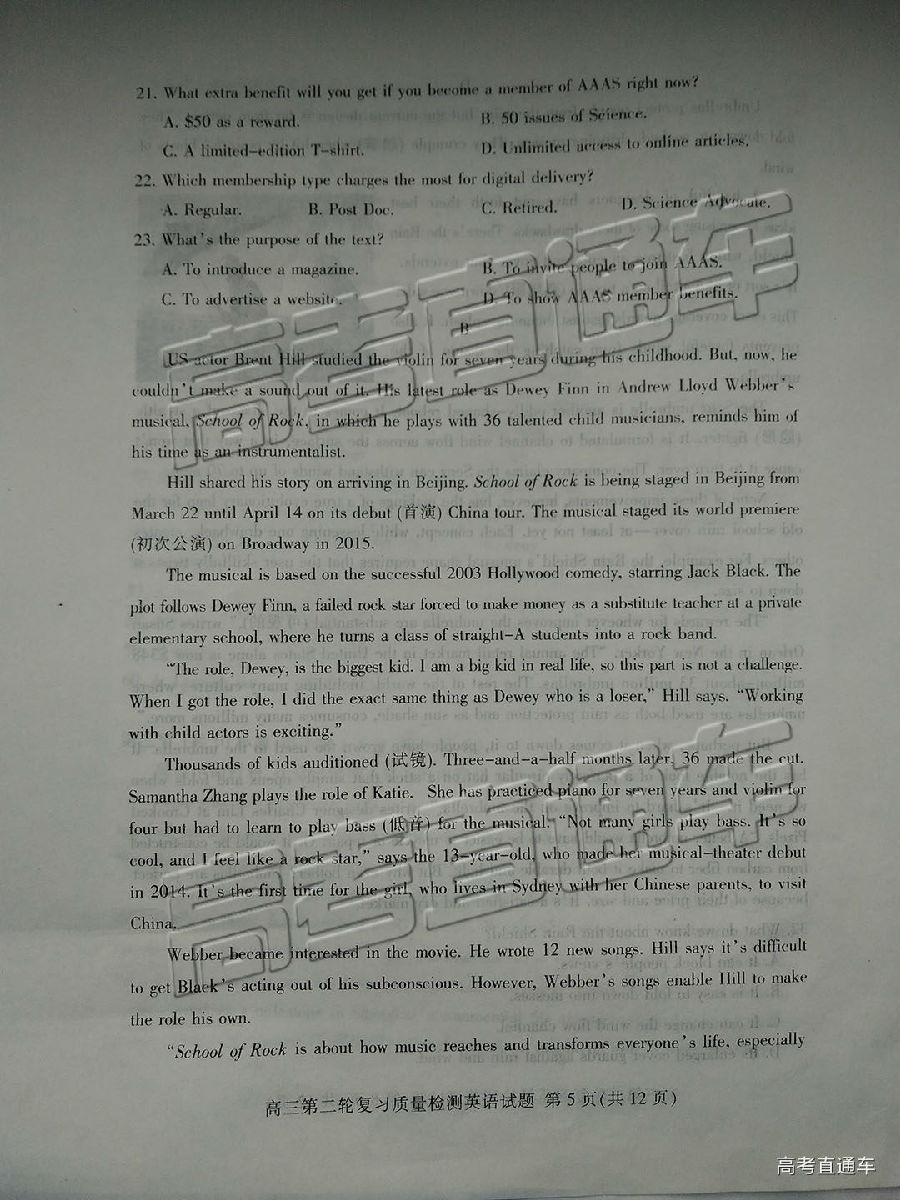 21. What extra benefit will you get if you become a member of AAAS right now?
A. $50 as a reward. B. 50 issues of Science.
C. A limited-edition T-shirt. D. Unlimited access to online articles.
22. Which membership type charges the most for digital delivery?
A. Regular. B. Post Doc. C. Retired. D. Science Advocate.
23. What's the purpose of the text?
A. To introduce a magazine. B. To invite people to join AAAS.
C. To advertise a website. D. To show AAAS member benefits.
B
US actor Brent Hill studied the violin for seven years during his childhood. But, now, he
couldn't make a sound out of it. His latest role as Dewey Finn in Andrew Lloyd Webber's
musical, School of Rock, in which he plays with 36 talented child musicians, reminds him of
his time as an instrumentalist.
Hill shared his story on arriving in Beijing. School of Rock is being staged in Beijing from
March 22 until April 14 on its debut (首演) China tour. The musical staged its world premiere
(初次公演) on Broadway in 2015.
The musical is based on the successful 2003 Hollywood comedy, starring Jack Black. The
plot follows Dewey Finn, a failed rock star forced to make money as a substitute teacher at a private
elementary school, where he turns a class of straight-A students into a rock band.
"The role, Dewey, is the biggest kid. I am a big kid in real life, so this part is not a challenge.
When I got the role, I did the exact same thing as Dewey who is a loser," Hill says. "Working
with child actors is exciting."
Thousands of kids auditioned (试镜). Three-and-a-half months later, 36 made the cut.
Samantha Zhang plays the role of Katie. She has practiced piano for seven years and violin for
four but had to learn to play bass (低音) for the musical. "Not many girls play bass. It's so
cool, and I feel like a rock star," says the 13-year-old, who made her musical-theater debut
in 2014. It's the first time for the girl, who lives in Sydney with her Chinese parents, to visit
China.
Webber became interested in the movie. He wrote 12 new songs. Hill says it's difficult
to get Black's acting out of his subconscious. However, Webber's songs enable Hill to make
the role his own.
"School of Rock is about how music reaches and transforms everyone's life, especially
高三第二轮复习质量检测英语试题 第5页(共12页)
高考直通车
高考直通车
高考直通车